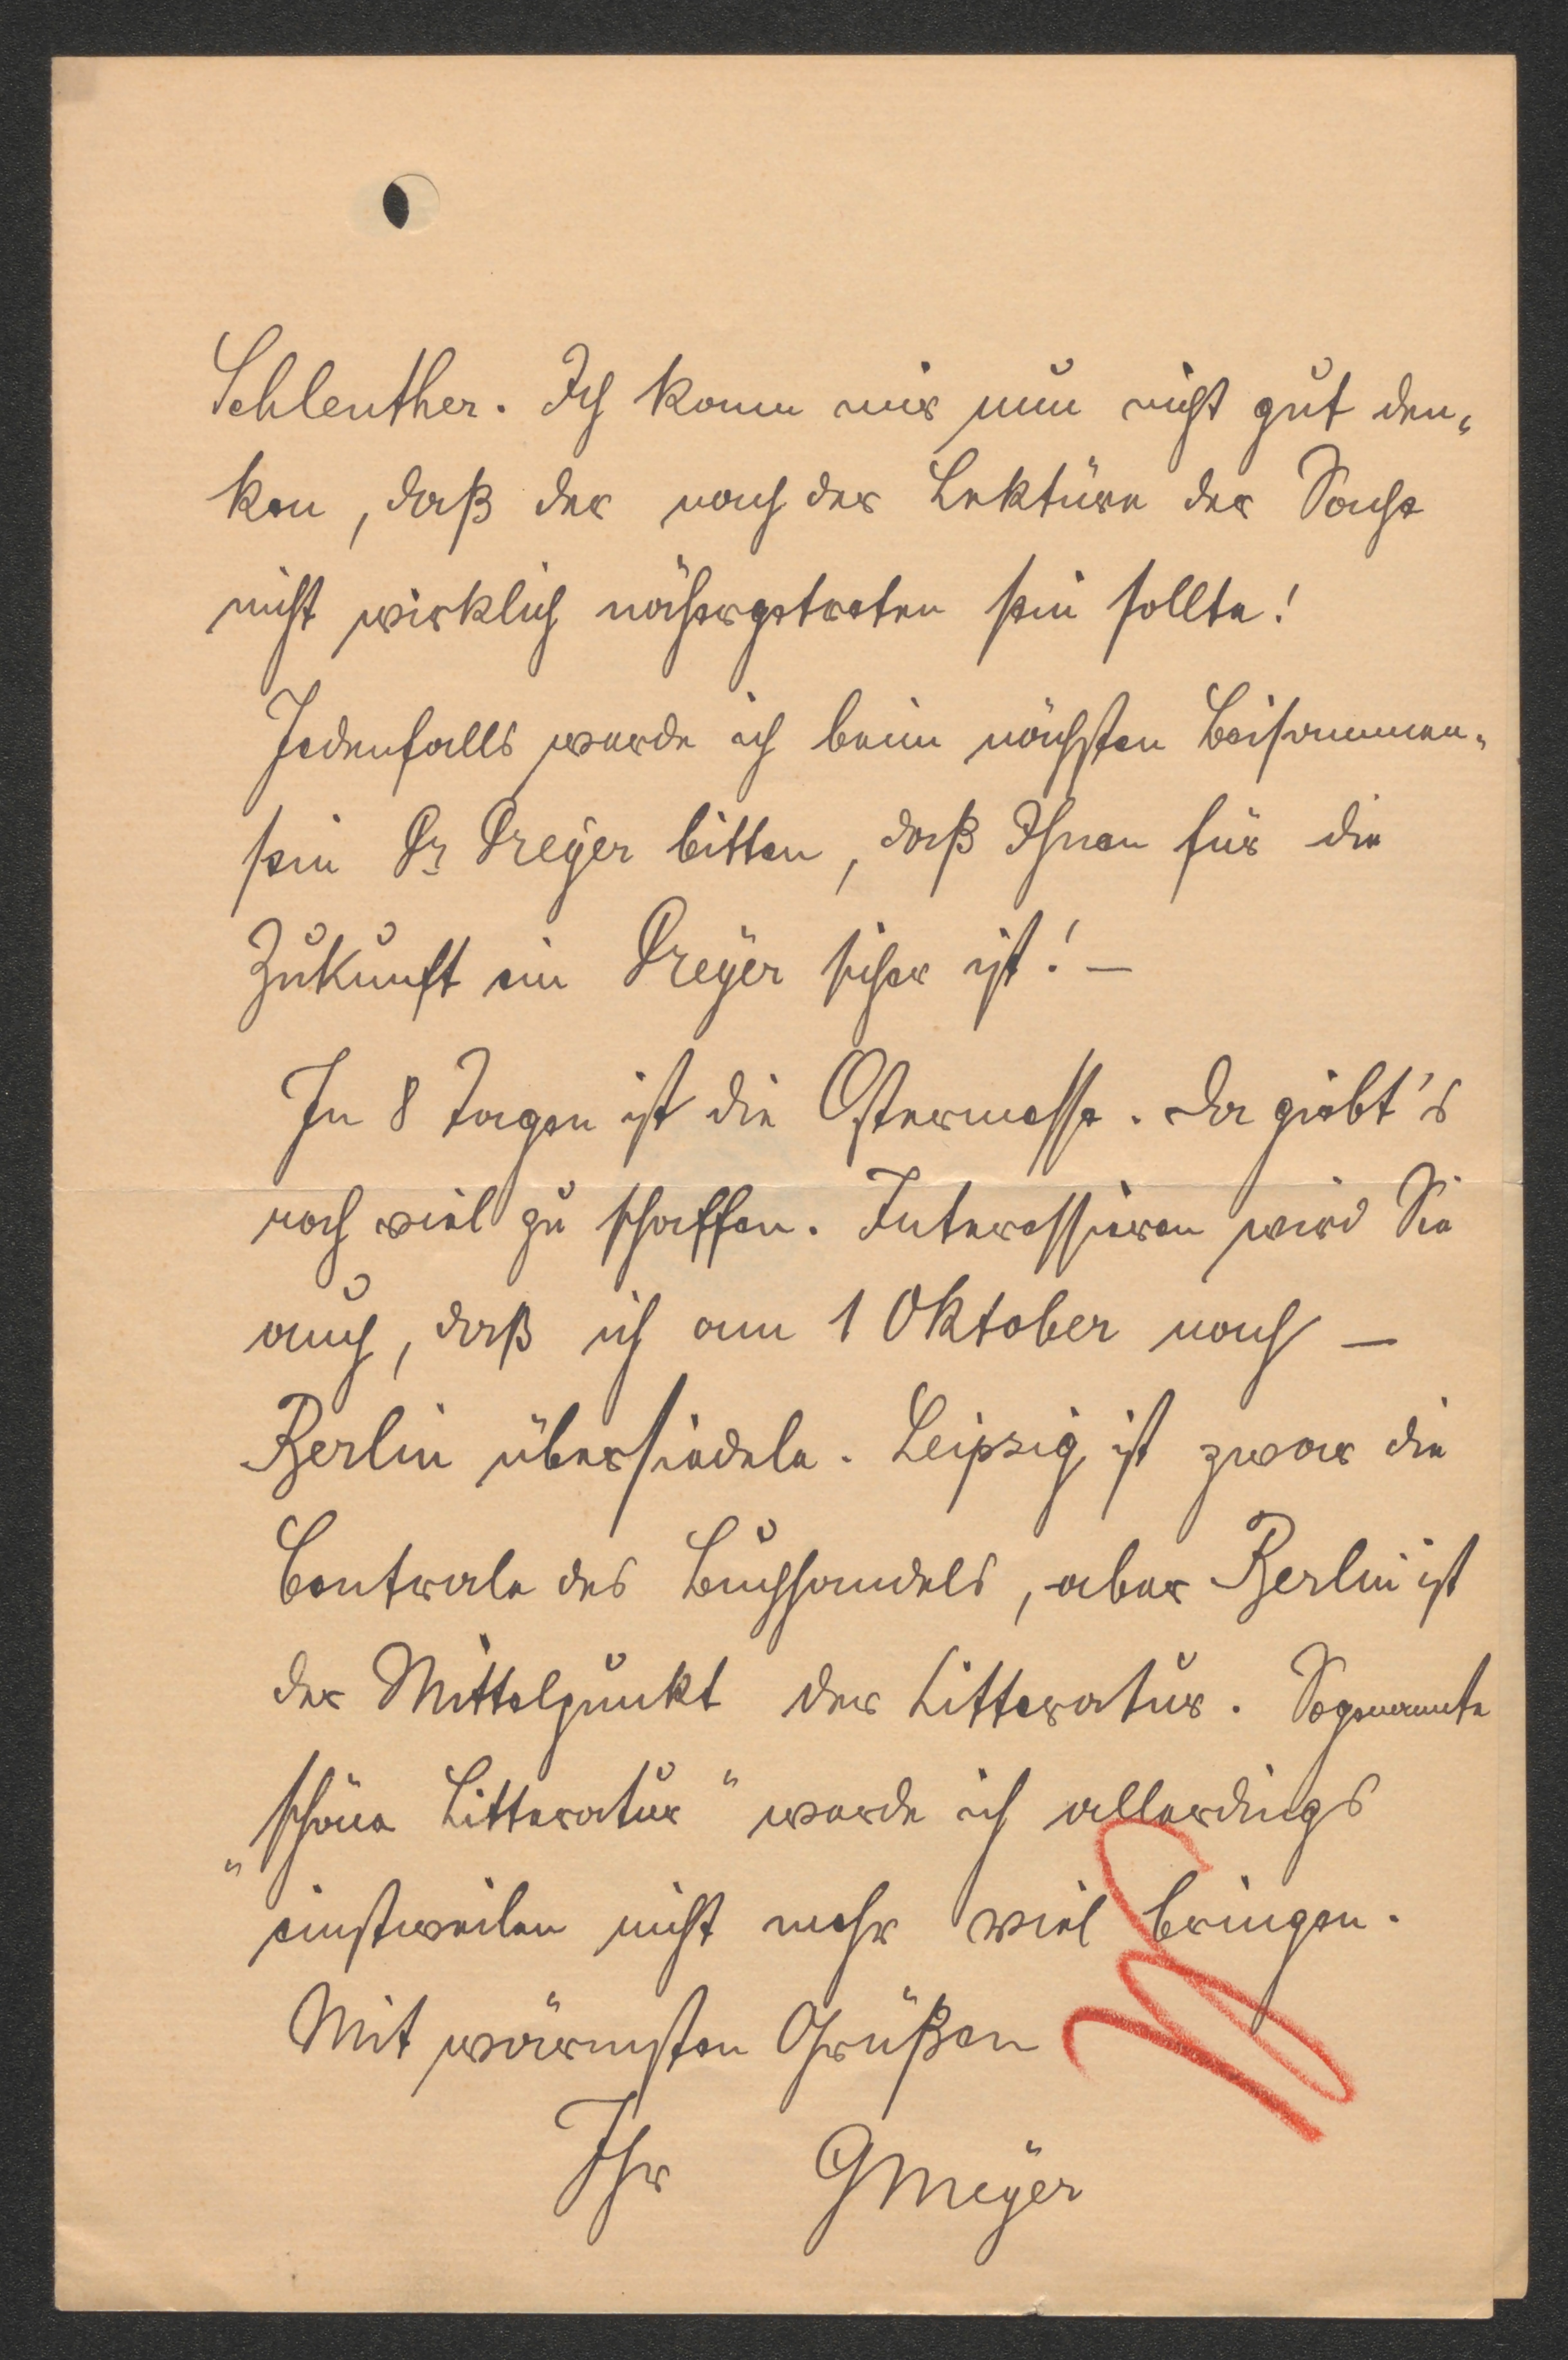 Schlenther. Ich kann mir nun nicht gut den-
ken, daß der nach der Lektüre der Sache
nicht wirklich nähergetreten sein sollte!
Jedenfalls werde ich beim nächsten Beisammen-
sein Dr Dreÿer bitten, daß Ihnen für die
Zukunft ein Dreÿer sicher ist! –
In 8 Tagen ist die Ostermesse. Da giebt's
noch viel zu schaffen. Interessieren wird Sie
auch, daß ich am 1 Oktober nach –
Berlin übersiedele. Leipzig ist zwar die
Centrale des Buchhandels, aber Berlin ist
der Mittelpunkt der Litteratur. Sogenannte
„schöne Litteratur“ werde ich allerdings
einstweilen nicht mehr viel bringen.
Mit wärmsten Grüßen
Ihr GMeÿer